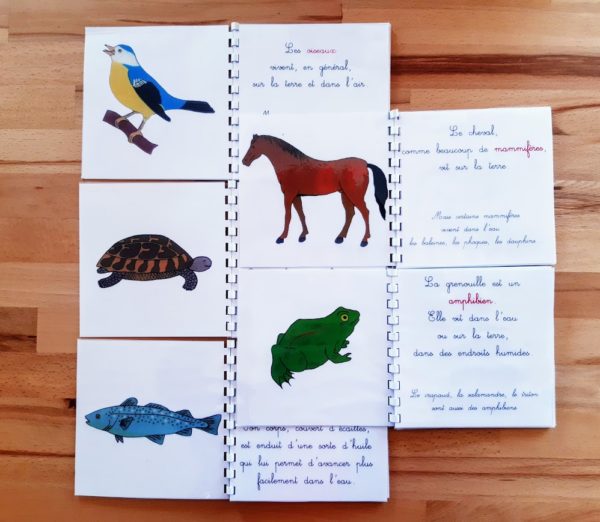 Les oiseaux
vivent, en général,
sur la terre et dans l'air.
Le cheval,
comme beaucoup de mammifères,
vit sur la terre.
Mais certains mammifères
vivent dans l'eau :
les baleines, les phoques, les dauphins...
La grenouille est un
amphibien.
Elle vit dans l'eau
ou sur la terre,
dans des endroits humides.
Le crapaud, la salamandre, le triton
sont aussi des amphibiens.
Son corps, couvert d'écailles,
est enduit d'une sorte d'huile
qui lui permet d'avancer plus
facilement dans l'eau.